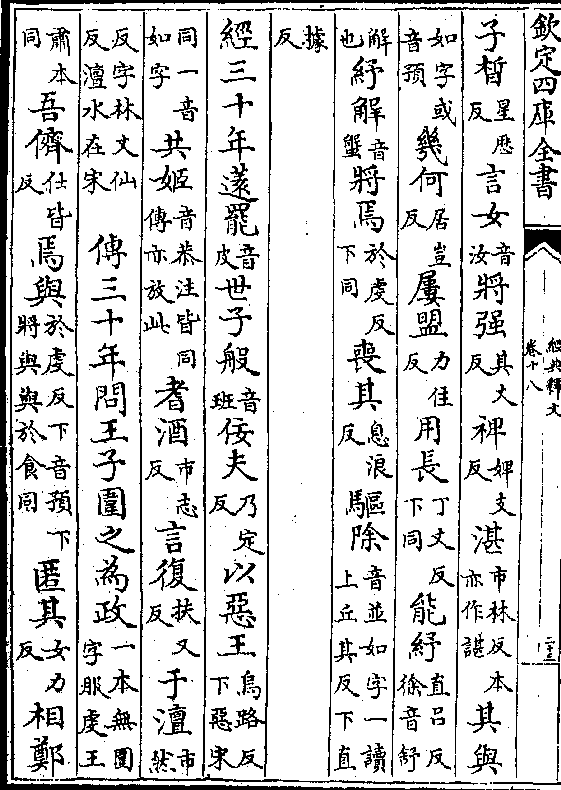 欽定四庫全書
經典釋文
卷十八
子晳星歷反言女音汝將强其丈反裨婢支反湛市林反本亦作諶其與
如字或音預幾何居豈反屢盟力住反用長丁丈反下同能紓直吕反徐音舒
解也紓解音蟹將焉於虔反下同喪其息浪反驅除音並如字一讀上丘其反下直
據反
經三十年薳罷音皮世子般音班佞夫乃定反以惡王烏路反下惡宋
同一音如字共姬音恭注皆同傳亦放此耆酒市志反言復扶又反于澶市然
反字林丈仙反澶水在宋傳三十年問王子圍之為政一本無圍字服虔王
肅本同吾儕仕皆反焉與於虔反下音預下將與與於食同匿其女力反相鄭